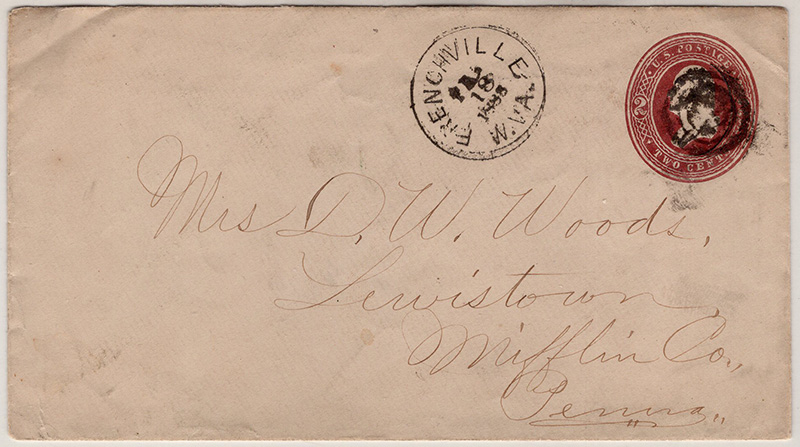 FRENCHVILLE W. VA.
18
1885
U.S. POSTAGE
2
TWO CENTS
Mrs D. W. Woods,
Lewistown
Mifflin Co.,
Penna,,